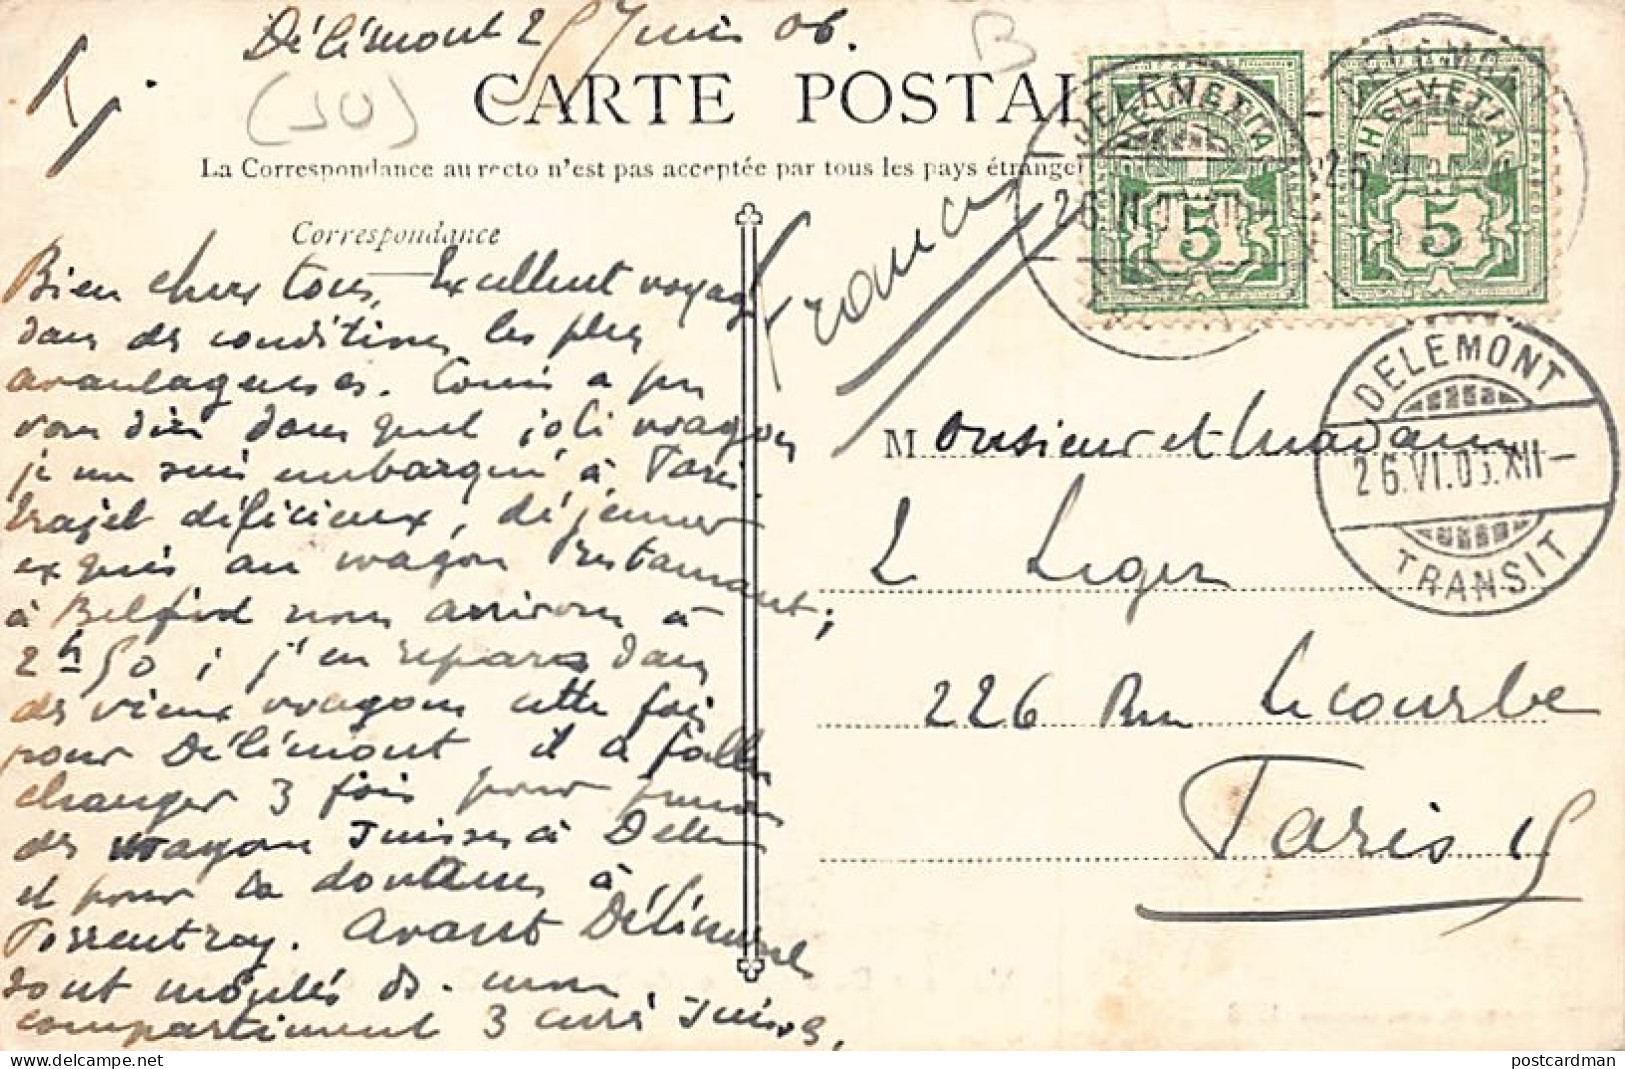 Délémont 25 Juin 06.
1).
(JU)
B
CARTE POSTAL
La Correspondance au recto n'est pas acceptée par tous les pays étranger
Correspondance
Bien chers tous, Excellent voyage
dans des conditions les plus
avantageuses. Comme a pu
vous dire dans quel joli wagon
je me suis embarqué à Paris.
trajet délicieux, déjeuner
exquis au wagon restaurant;
à Belford nous arrivons à
2h50; j'en repars dans
des vieux wagons cette fois
pour Délémont il a fallu
changer 3 fois pour
des wagons suisses à Delle
et pour la douane à
Porrentruy. Avant Délémont
sont montés ds. mon
compartiment 3 curés suisses,
France
HELVETIA
FRANCO
5
HELVETIA
FRANCO
5
DELEMONT
26.VI.0 .XII
DELEMONT
25
DELEMONT
26.VI.06.XII-
TRANSIT
Monsieur et Madame
L Leger
226 Rue Lecourbe
Paris 15
delcampe.net
postcardman